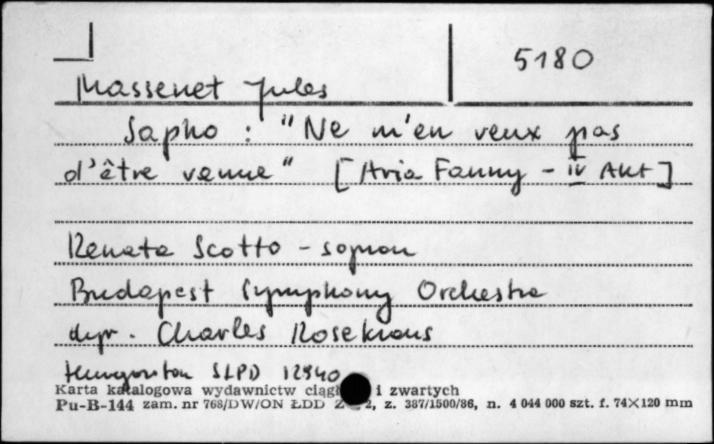 5180
Massenet Jules
Sapho : "Ne m'en veux pas
d'être venue" [Aria Fanny - IV Akt]
Renata Scotto - sopran
Budapest Symphony Orchestra
dyr. Charles Rosekrans
Hungaroton SLPD 12940
Karta katalogowa wydawnictw i zwartych
Pu-B-144 zam. nr 768/DW/ON ŁDD z. 387/1500/86, n. 4 044 000 szt. f. 74×120 mm